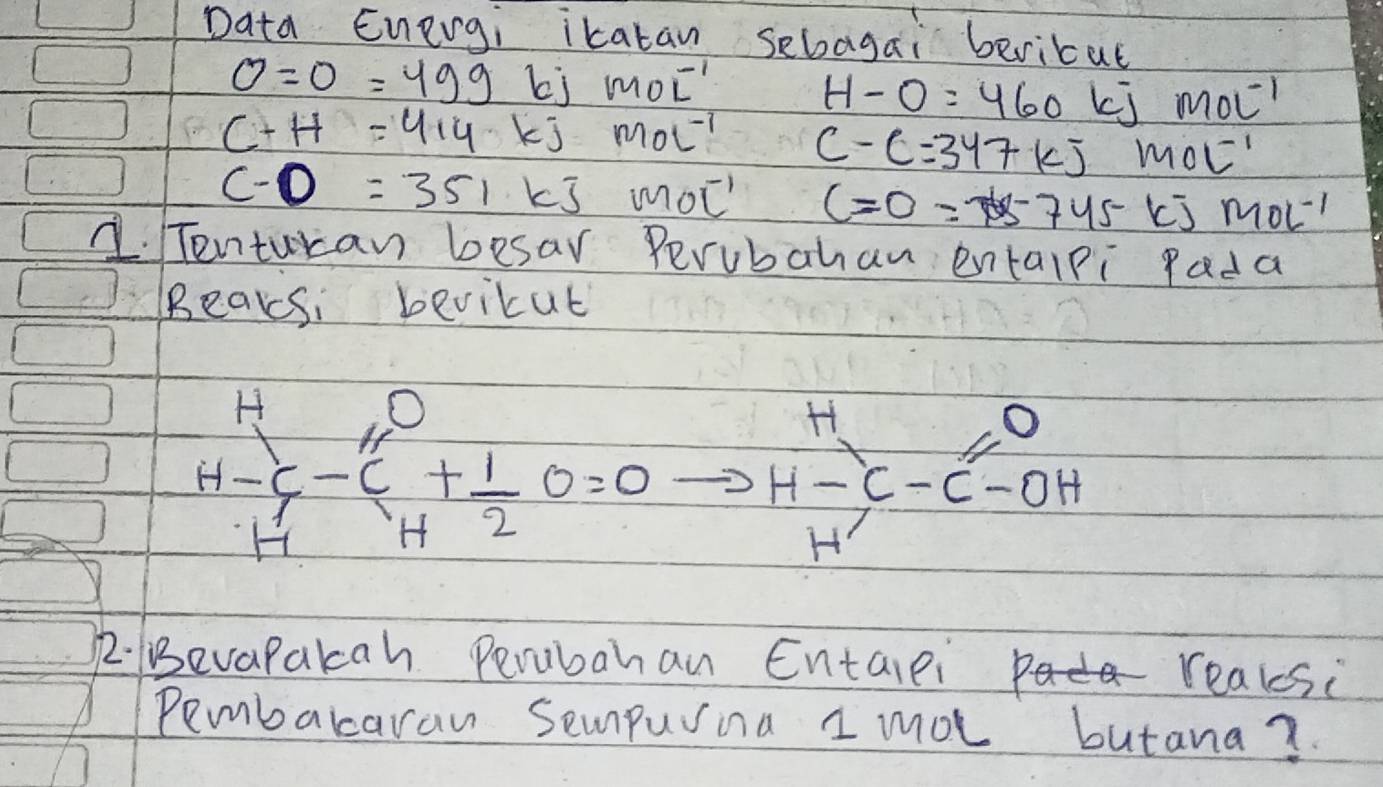 Data Energi ikatan sebagai berikut
O=O = 499 kj mol⁻¹ H-O = 460 kj mol⁻¹
C-H = 414 kj mol⁻¹ C-C = 347 kj mol⁻¹
C-O = 351 kj mol⁻¹ C=O = 745 kj mol⁻¹
1. Tentukan besar Perubahan entalpi Pada
Reaksi berikut
H O H O
H-C-C + 1/2 O=O → H-C-C-OH
H H H
2. Berapakah Perubahan Entalpi Pada reaksi
Pembakaran Sempurna 1 mol butana?